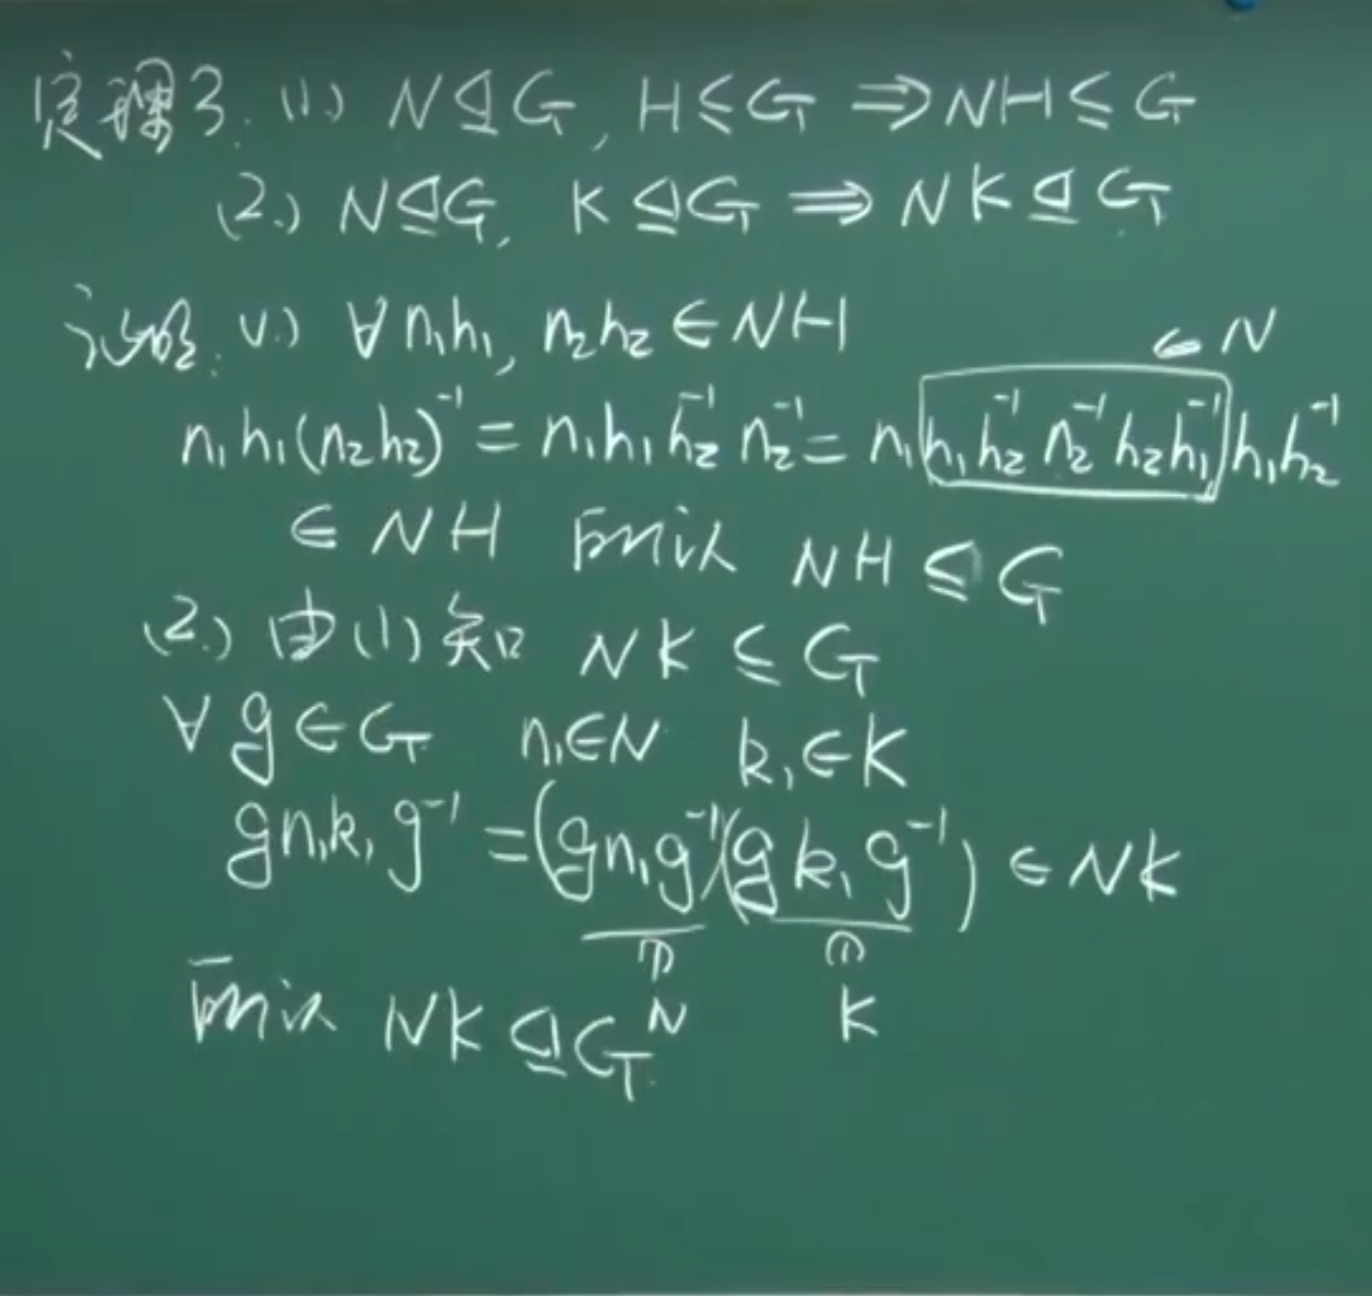 定理3. (1) N⊴G, H≤G ⇒ NH≤G
(2.) N⊴G, K⊴G ⇒ NK⊴G
证明: (1.) ∀ n₁h₁, n₂h₂ ∈ NH
∈ N
n₁h₁(n₂h₂)⁻¹ = n₁h₁h₂⁻¹n₂⁻¹ = n₁h₁h₂⁻¹n₂⁻¹h₂h₁⁻¹h₁h₂⁻¹
∈ NH 所以 NH ≤ G
(2.) 由(1)知 NK ≤ G
∀ g∈G n₁∈N k₁∈K
gn₁k₁g⁻¹ = (gn₁g⁻¹)(gk₁g⁻¹) ∈ NK
∩ ∩
N K
所以 NK⊴G